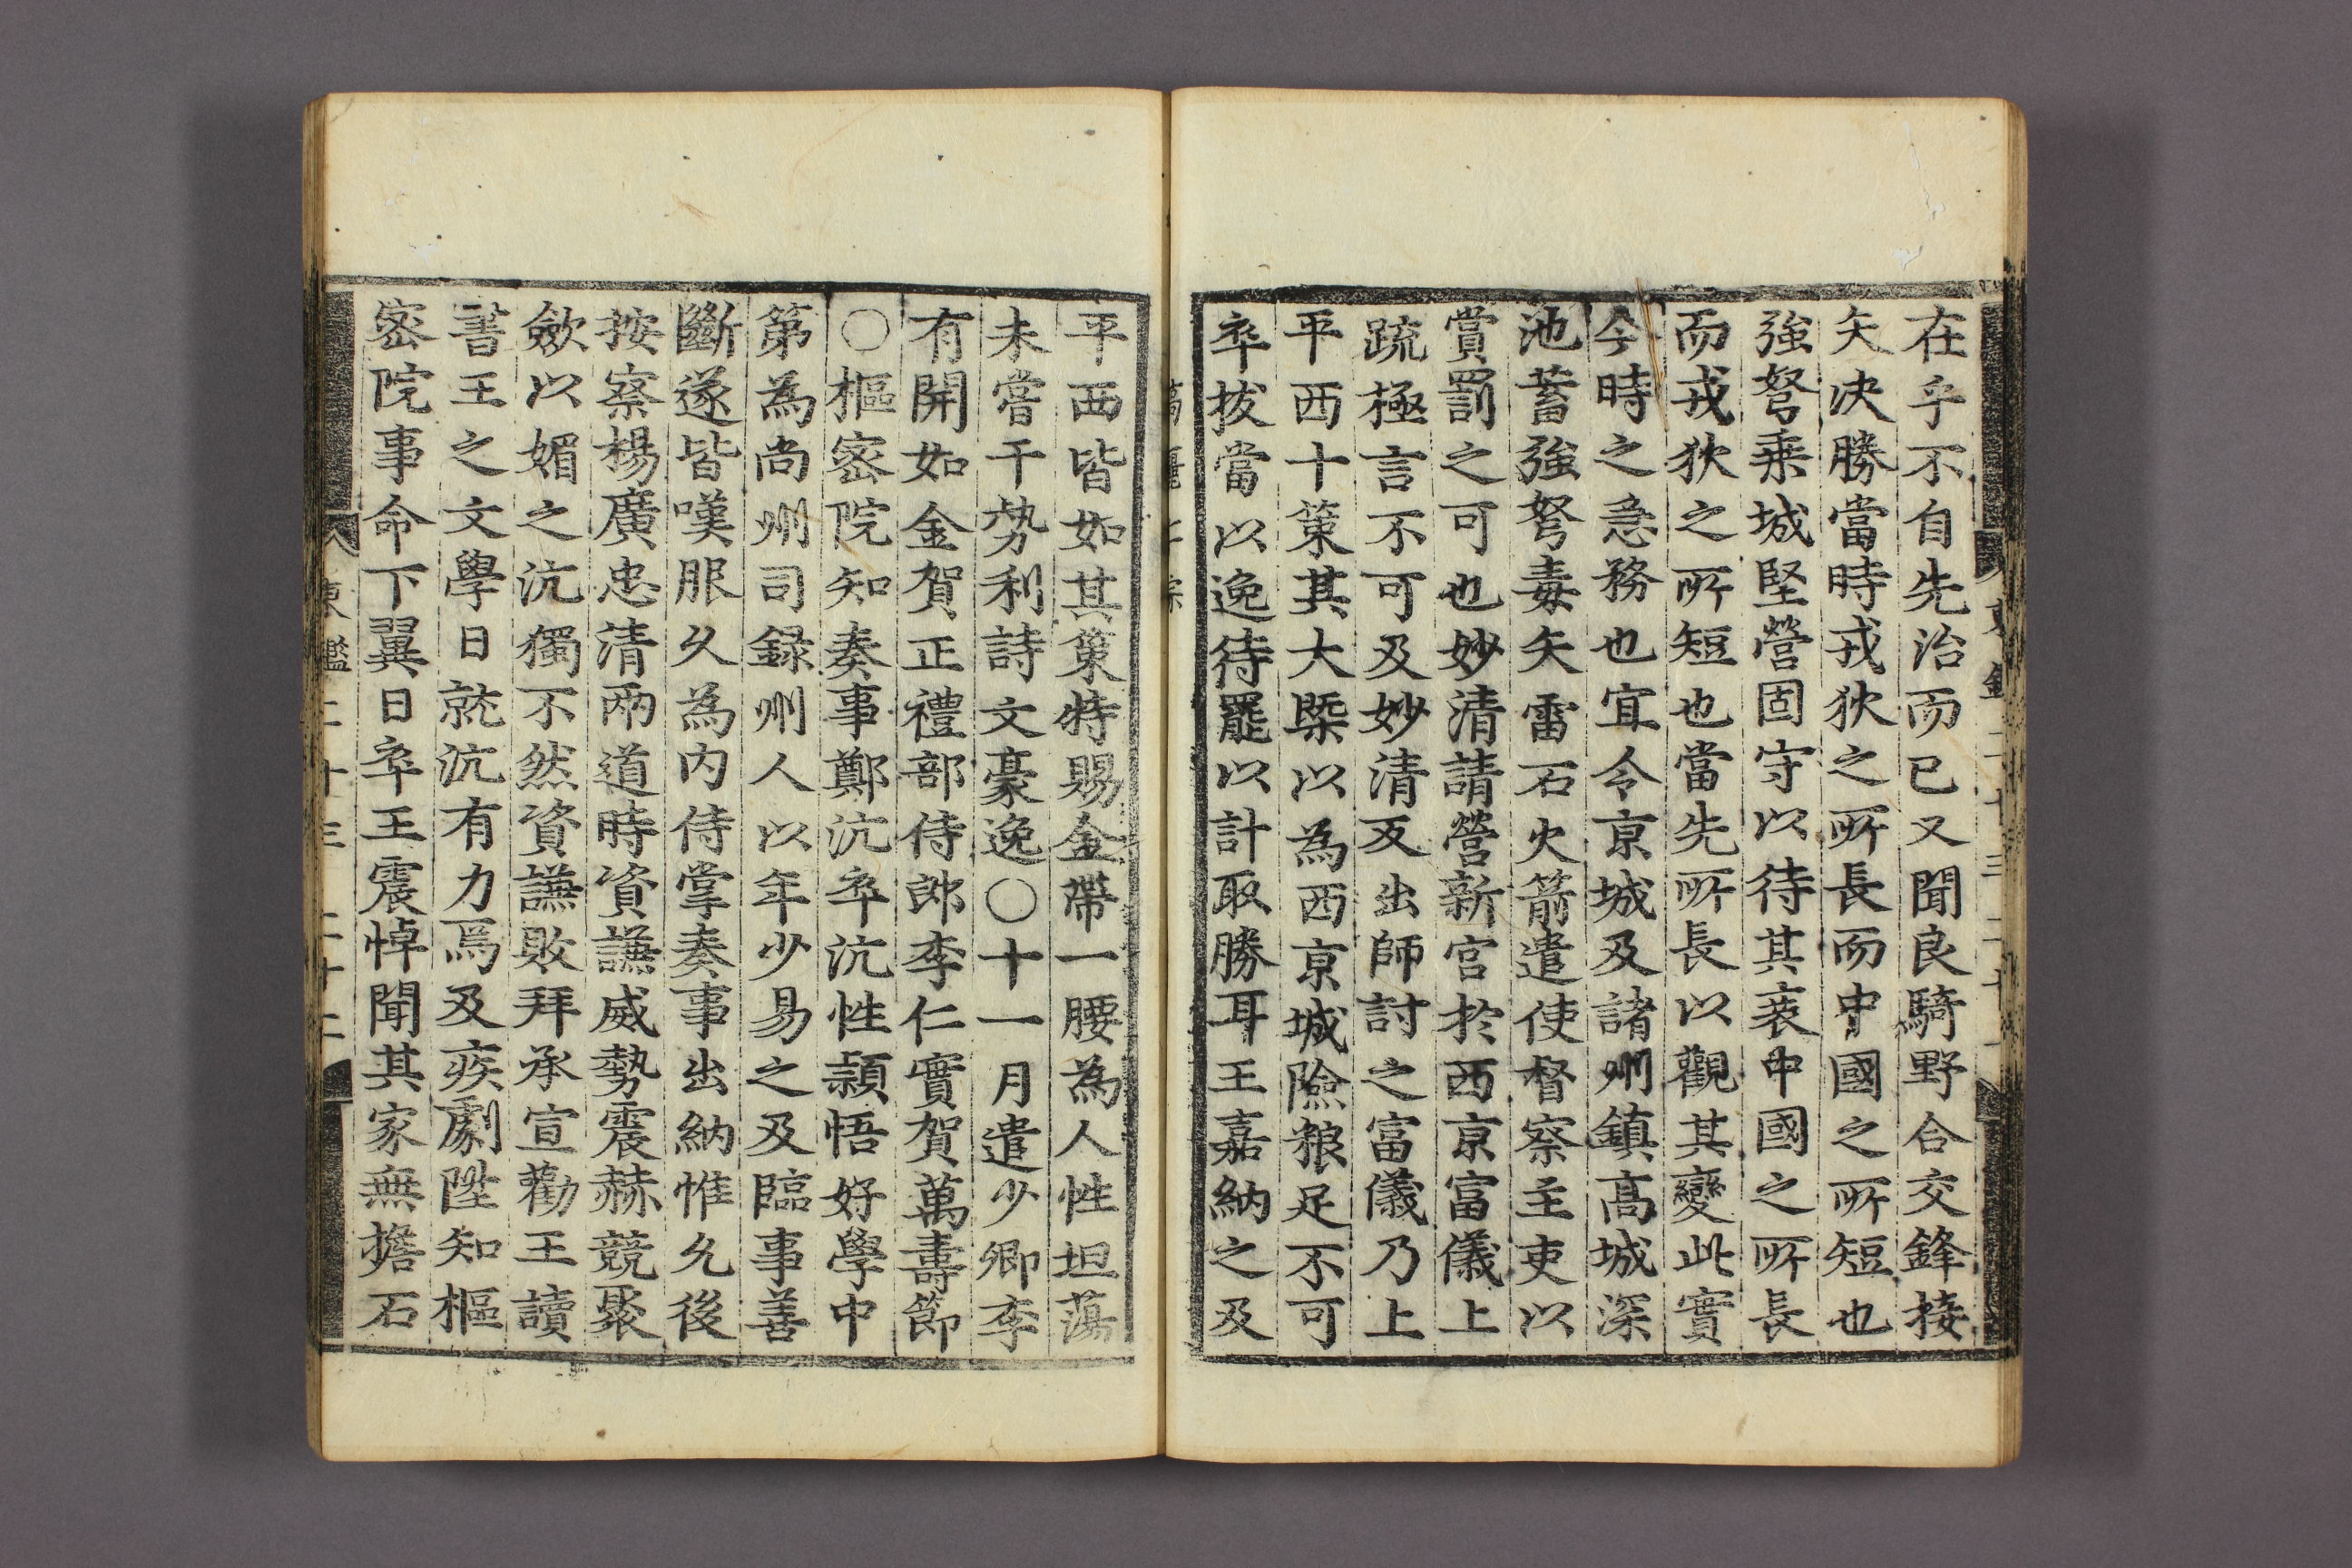 在乎不自先治而已又聞良騎野合交鋒接
矢决勝當時戎狄之所長而中國之所短也
強弩乗城堅營固守以待其衰中國之所長
而戎狄之所短也當先所長以觀其變此實
今時之急務也宜令亰城及諸州鎮髙城深
池蓄強弩毒矢雷石火箭遣使督察主吏以
賞罰之可也妙清請營新宫於西亰富儀上
疏極言不可及妙清反出師討之富儀乃上
平西十策其大槩以為西亰城險粮足不可
卒拔當以逸待罷以計取勝耳王嘉納之及
平西皆如其策特賜金帶一腰為人性坦蕩
未嘗干勢利詩文豪逸○十一月遣少卿李
有開如金賀正禮部侍郎李仁實賀萬壽節
○樞密院知奏事鄭沆卒沆性頴悟好學中
第為尚州司録州人以年少易之及臨事善
斷遂皆嘆服久為内侍掌奏事出納惟允後
按察楊廣忠清兩道時資謙威勢震赫競聚
斂以媚之沆獨不然資謙敗拜承宣勸王讀
書王之文學日就沆有力焉及疾劇陞知樞
密院事命下翼日卒王震悼聞其家無擔石
東鑑二十三 二十二